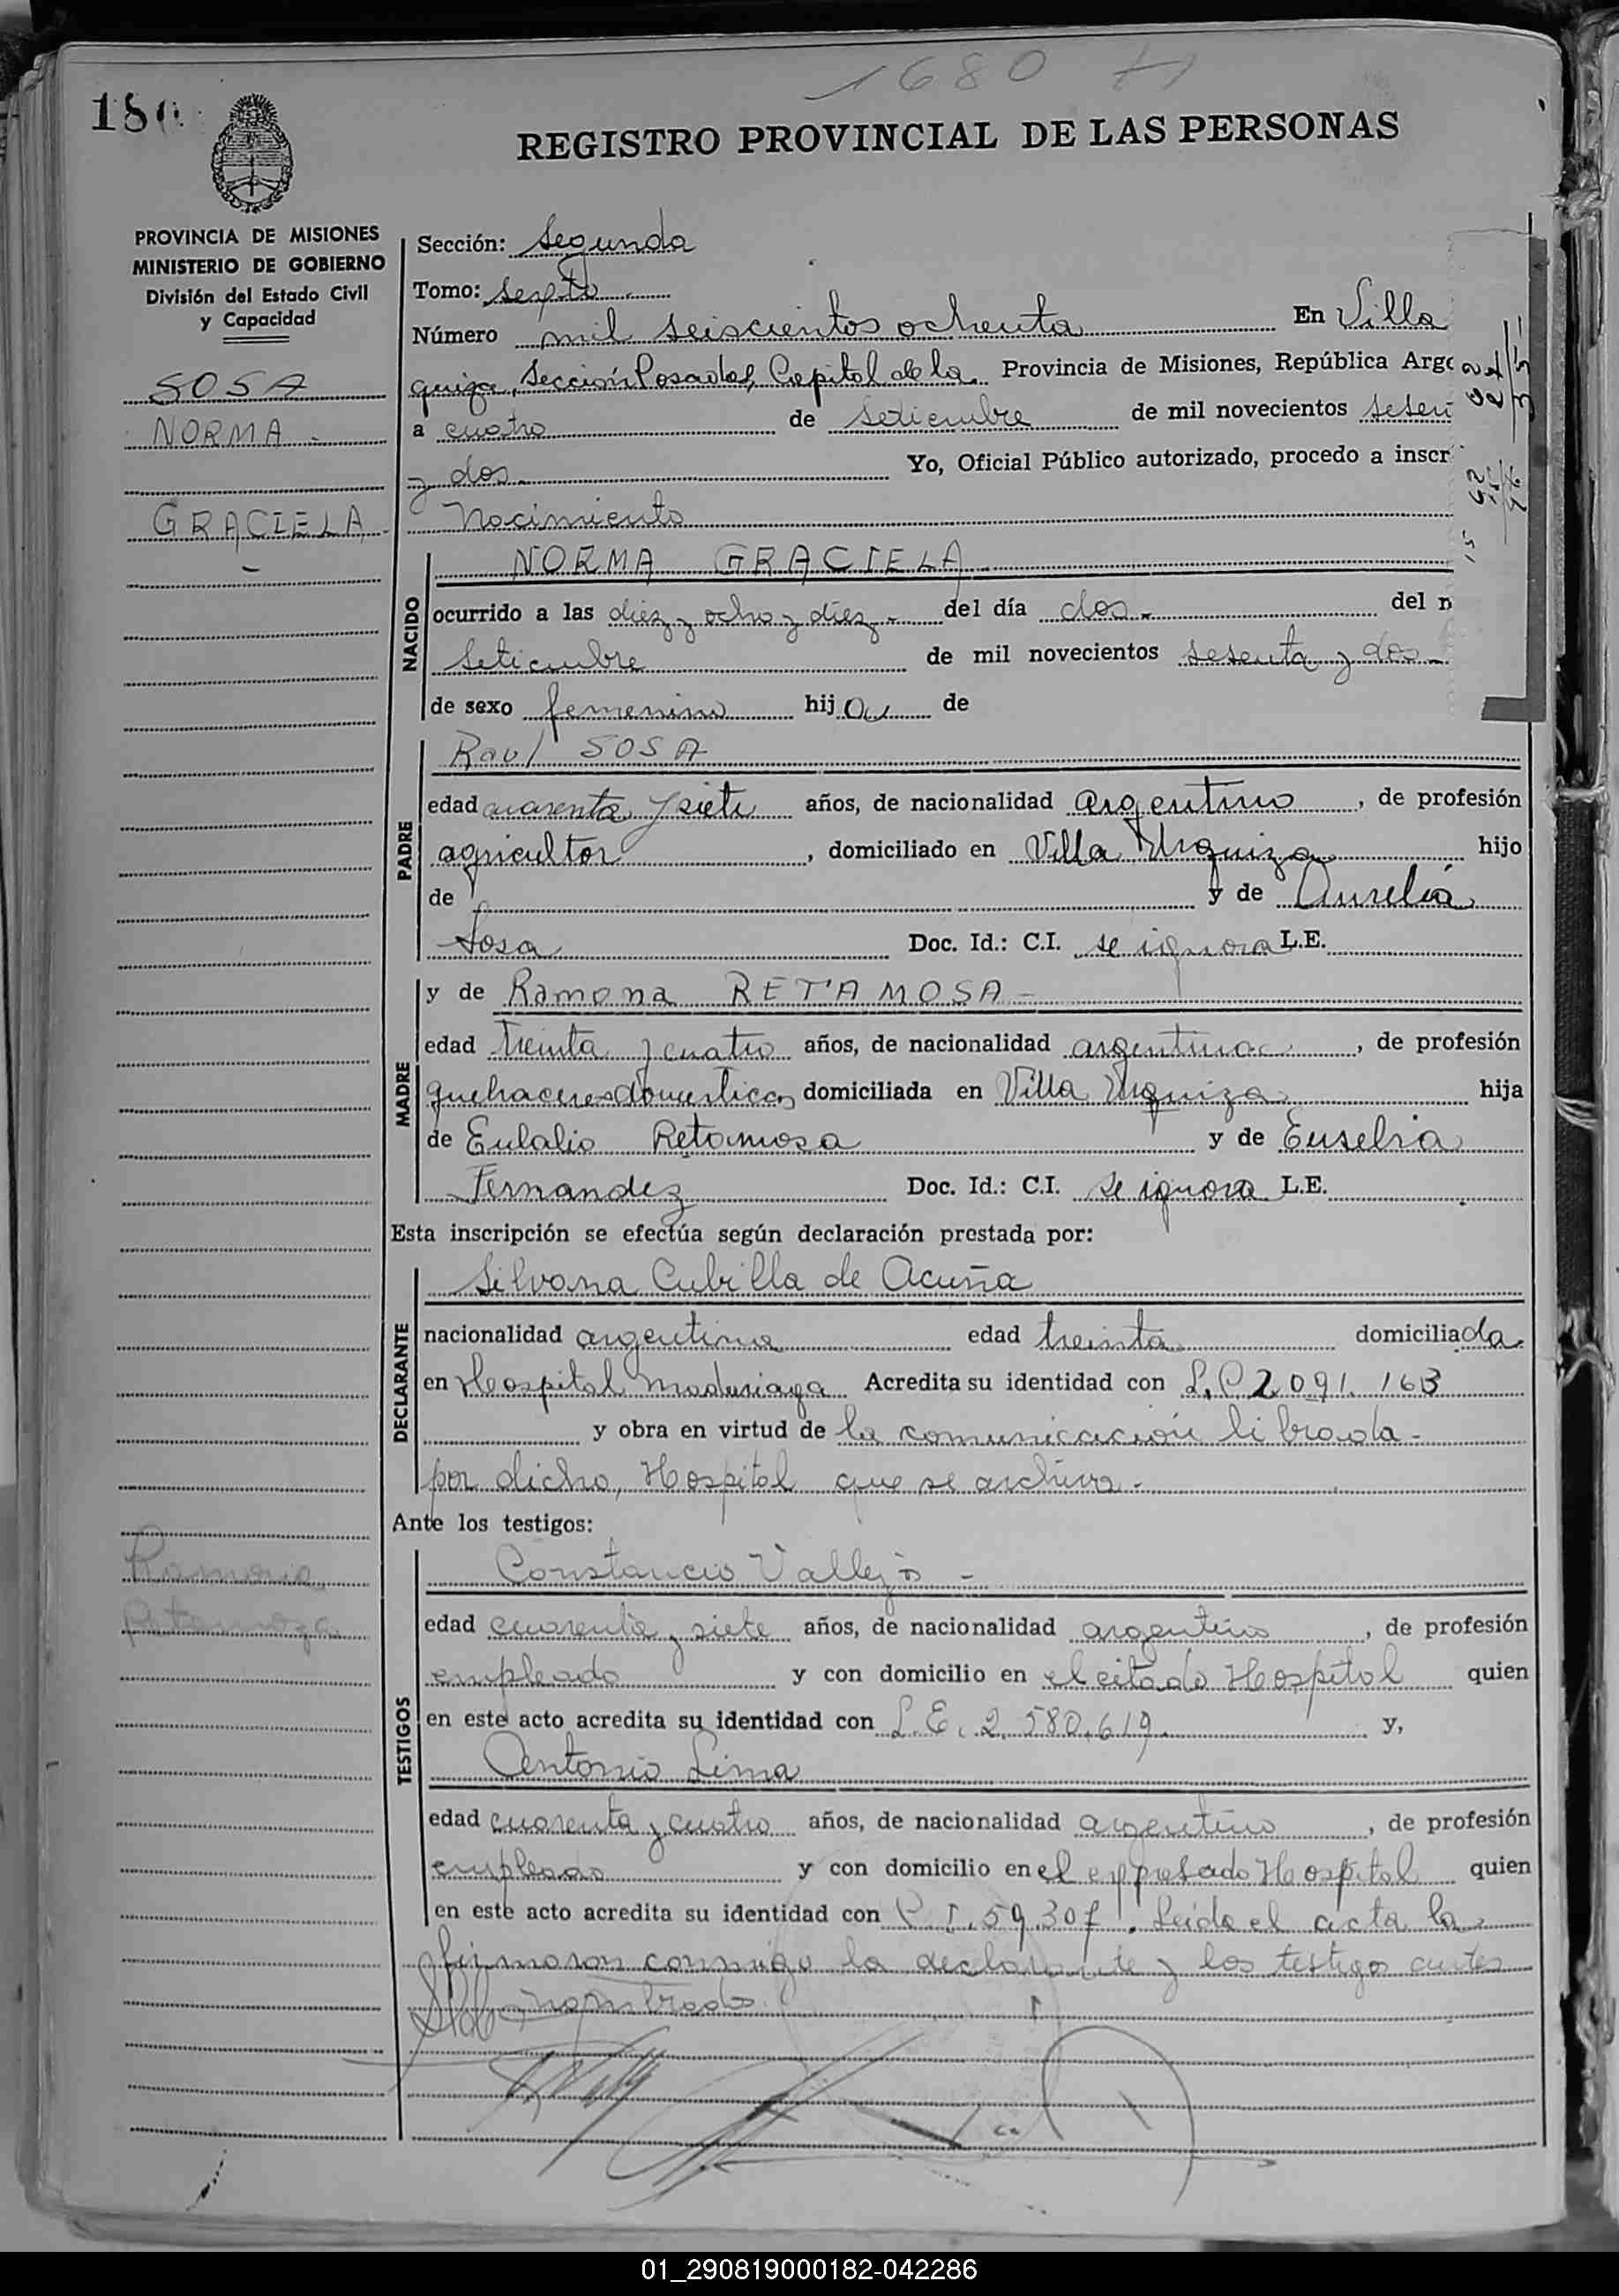 1680
18
REGISTRO PROVINCIAL DE LAS PERSONAS
PROVINCIA DE MISIONES
MINISTERIO DE GOBIERNO
División del Estado Civil
y Capacidad
SOSA
NORMA
GRACIELA
Sección: Segunda
Tomo: Sexto
Número mil seiscientos ochenta En Villa
quiza, Sección Posadas, Capital de la Provincia de Misiones, República Arge
a cuatro de Setiembre de mil novecientos sesen
y dos Yo, Oficial Público autorizado, procedo a inscr
Nacimiento
NACIDO
NORMA GRACIELA
ocurrido a las diez y ocho y diez del día dos del m
Setiembre de mil novecientos sesenta y dos
de sexo femenino hija de
PADRE
Raul SOSA
edad cuarenta y siete años, de nacionalidad argentino, de profesión
agricultor, domiciliado en Villa Urquiza hijo
de y de Aurelia
Sosa Doc. Id.: C.I. se ignora L.E.
MADRE
y de Ramona RETAMOSA
edad treinta y cuatro años, de nacionalidad argentina, de profesión
quehaceres domesticos domiciliada en Villa Urquiza hija
de Eulalio Retamosa y de Eusebia
Fernandez Doc. Id.: C.I. se ignora L.E.
Esta inscripción se efectúa según declaración prestada por:
DECLARANTE
Silvana Cubilla de Acuña
nacionalidad argentina edad treinta domiciliada
en Hospital Madariaga Acredita su identidad con L.C 2.091.163
y obra en virtud de la comunicación librada
por dicho, Hospital que se archiva.
Ante los testigos:
Ramona
Retamoza
TESTIGOS
Constancio Vallejos
edad cuarenta y siete años, de nacionalidad argentino, de profesión
empleado y con domicilio en el citado Hospital quien
en este acto acredita su identidad con L.E. 2.580.619. y,
Antonio Lima
edad cuarenta y cuatro años, de nacionalidad argentino, de profesión
empleado y con domicilio en el expresado Hospital quien
en este acto acredita su identidad con C.I. 59.307. Leida el acta la
firmaron conmigo la declarante y los testigos antes
nombrados.
01_290819000182-042286